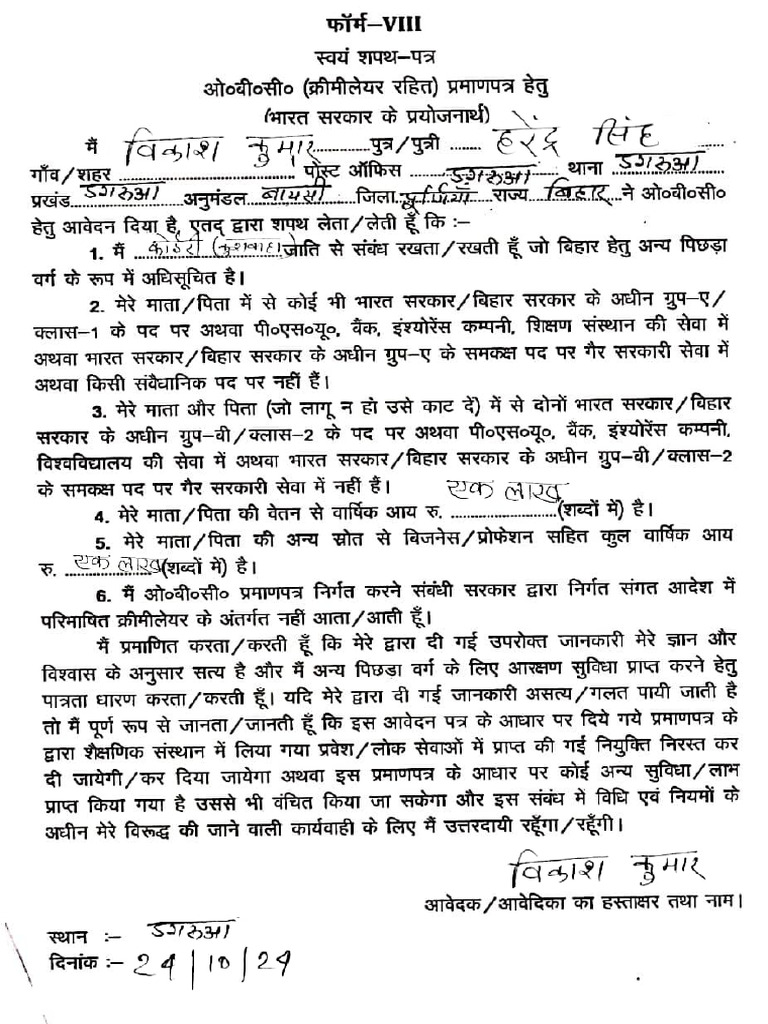 फॉर्म–VIII
स्वयं शपथ–पत्र
ओ०बी०सी० (क्रीमीलेयर रहित) प्रमाणपत्र हेतु
(भारत सरकार के प्रयोजनार्थ)
मैं विकाश कुमार पुत्र/पुत्री हरेंद्र सिंह
गाँव/शहर पोस्ट ऑफिस डगरुआ थाना डगरुआ
प्रखंड डगरुआ अनुमंडल बायसी जिला पूर्णियाँ राज्य बिहार ने ओ०बी०सी०
हेतु आवेदन दिया है, एतद् द्वारा शपथ लेता/लेती हूँ कि :–
1. मैं कोईरी (कुशवाहा) जाति से संबंध रखता/रखती हूँ जो बिहार हेतु अन्य पिछड़ा
वर्ग के रूप में अधिसूचित है।
2. मेरे माता/पिता में से कोई भी भारत सरकार/बिहार सरकार के अधीन ग्रुप–ए/
क्लास–1 के पद पर अथवा पी०एस०यू०, बैंक, इंश्योरेंस कम्पनी, शिक्षण संस्थान की सेवा में
अथवा भारत सरकार/बिहार सरकार के अधीन ग्रुप–ए के समकक्ष पद पर गैर सरकारी सेवा में
अथवा किसी संवैधानिक पद पर नहीं हैं।
3. मेरे माता और पिता (जो लागू न हो उसे काट दें) में से दोनों भारत सरकार/बिहार
सरकार के अधीन ग्रुप–बी/क्लास–2 के पद पर अथवा पी०एस०यू०, बैंक, इंश्योरेंस कम्पनी,
विश्वविद्यालय की सेवा में अथवा भारत सरकार/बिहार सरकार के अधीन ग्रुप–बी/क्लास–2
के समकक्ष पद पर गैर सरकारी सेवा में नहीं हैं।
4. मेरे माता/पिता की वेतन से वार्षिक आय रु. एक लाख (शब्दों में) है।
5. मेरे माता/पिता की अन्य स्रोत से बिजनेस/प्रोफेशन सहित कुल वार्षिक आय
रु. एक लाख (शब्दों में) है।
6. मैं ओ०बी०सी० प्रमाणपत्र निर्गत करने संबंधी सरकार द्वारा निर्गत संगत आदेश में
परिभाषित क्रीमीलेयर के अंतर्गत नहीं आता/आती हूँ।
मैं प्रमाणित करता/करती हूँ कि मेरे द्वारा दी गई उपरोक्त जानकारी मेरे ज्ञान और
विश्वास के अनुसार सत्य है और मैं अन्य पिछड़ा वर्ग के लिए आरक्षण सुविधा प्राप्त करने हेतु
पात्रता धारण करता/करती हूँ। यदि मेरे द्वारा दी गई जानकारी असत्य/गलत पायी जाती है
तो मैं पूर्ण रूप से जानता/जानती हूँ कि इस आवेदन पत्र के आधार पर दिये गये प्रमाणपत्र के
द्वारा शैक्षणिक संस्थान में लिया गया प्रवेश/लोक सेवाओं में प्राप्त की गई नियुक्ति निरस्त कर
दी जायेगी/कर दिया जायेगा अथवा इस प्रमाणपत्र के आधार पर कोई अन्य सुविधा/लाभ
प्राप्त किया गया है उससे भी वंचित किया जा सकेगा और इस संबंध में विधि एवं नियमों के
अधीन मेरे विरूद्ध की जाने वाली कार्यवाही के लिए मैं उत्तरदायी रहूँगा/रहूँगी।
विकाश कुमार
आवेदक/आवेदिका का हस्ताक्षर तथा नाम।
स्थान :– डगरुआ
दिनांक :– 24/10/24